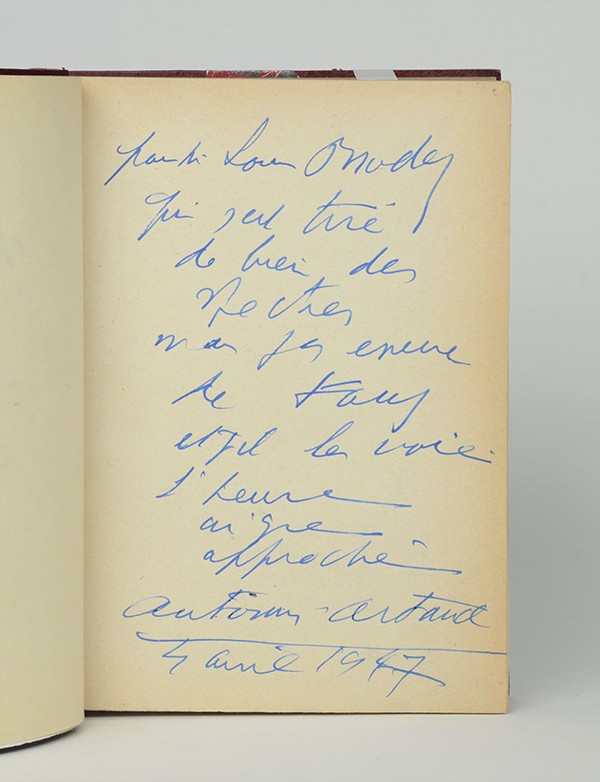 Louis Broder
qui s'est tiré
de bien des
spectres
mais pas encore
de tous
et qu'il les voie
l'heure
aigre
approche
Antonin Artaud
4 avril 1947